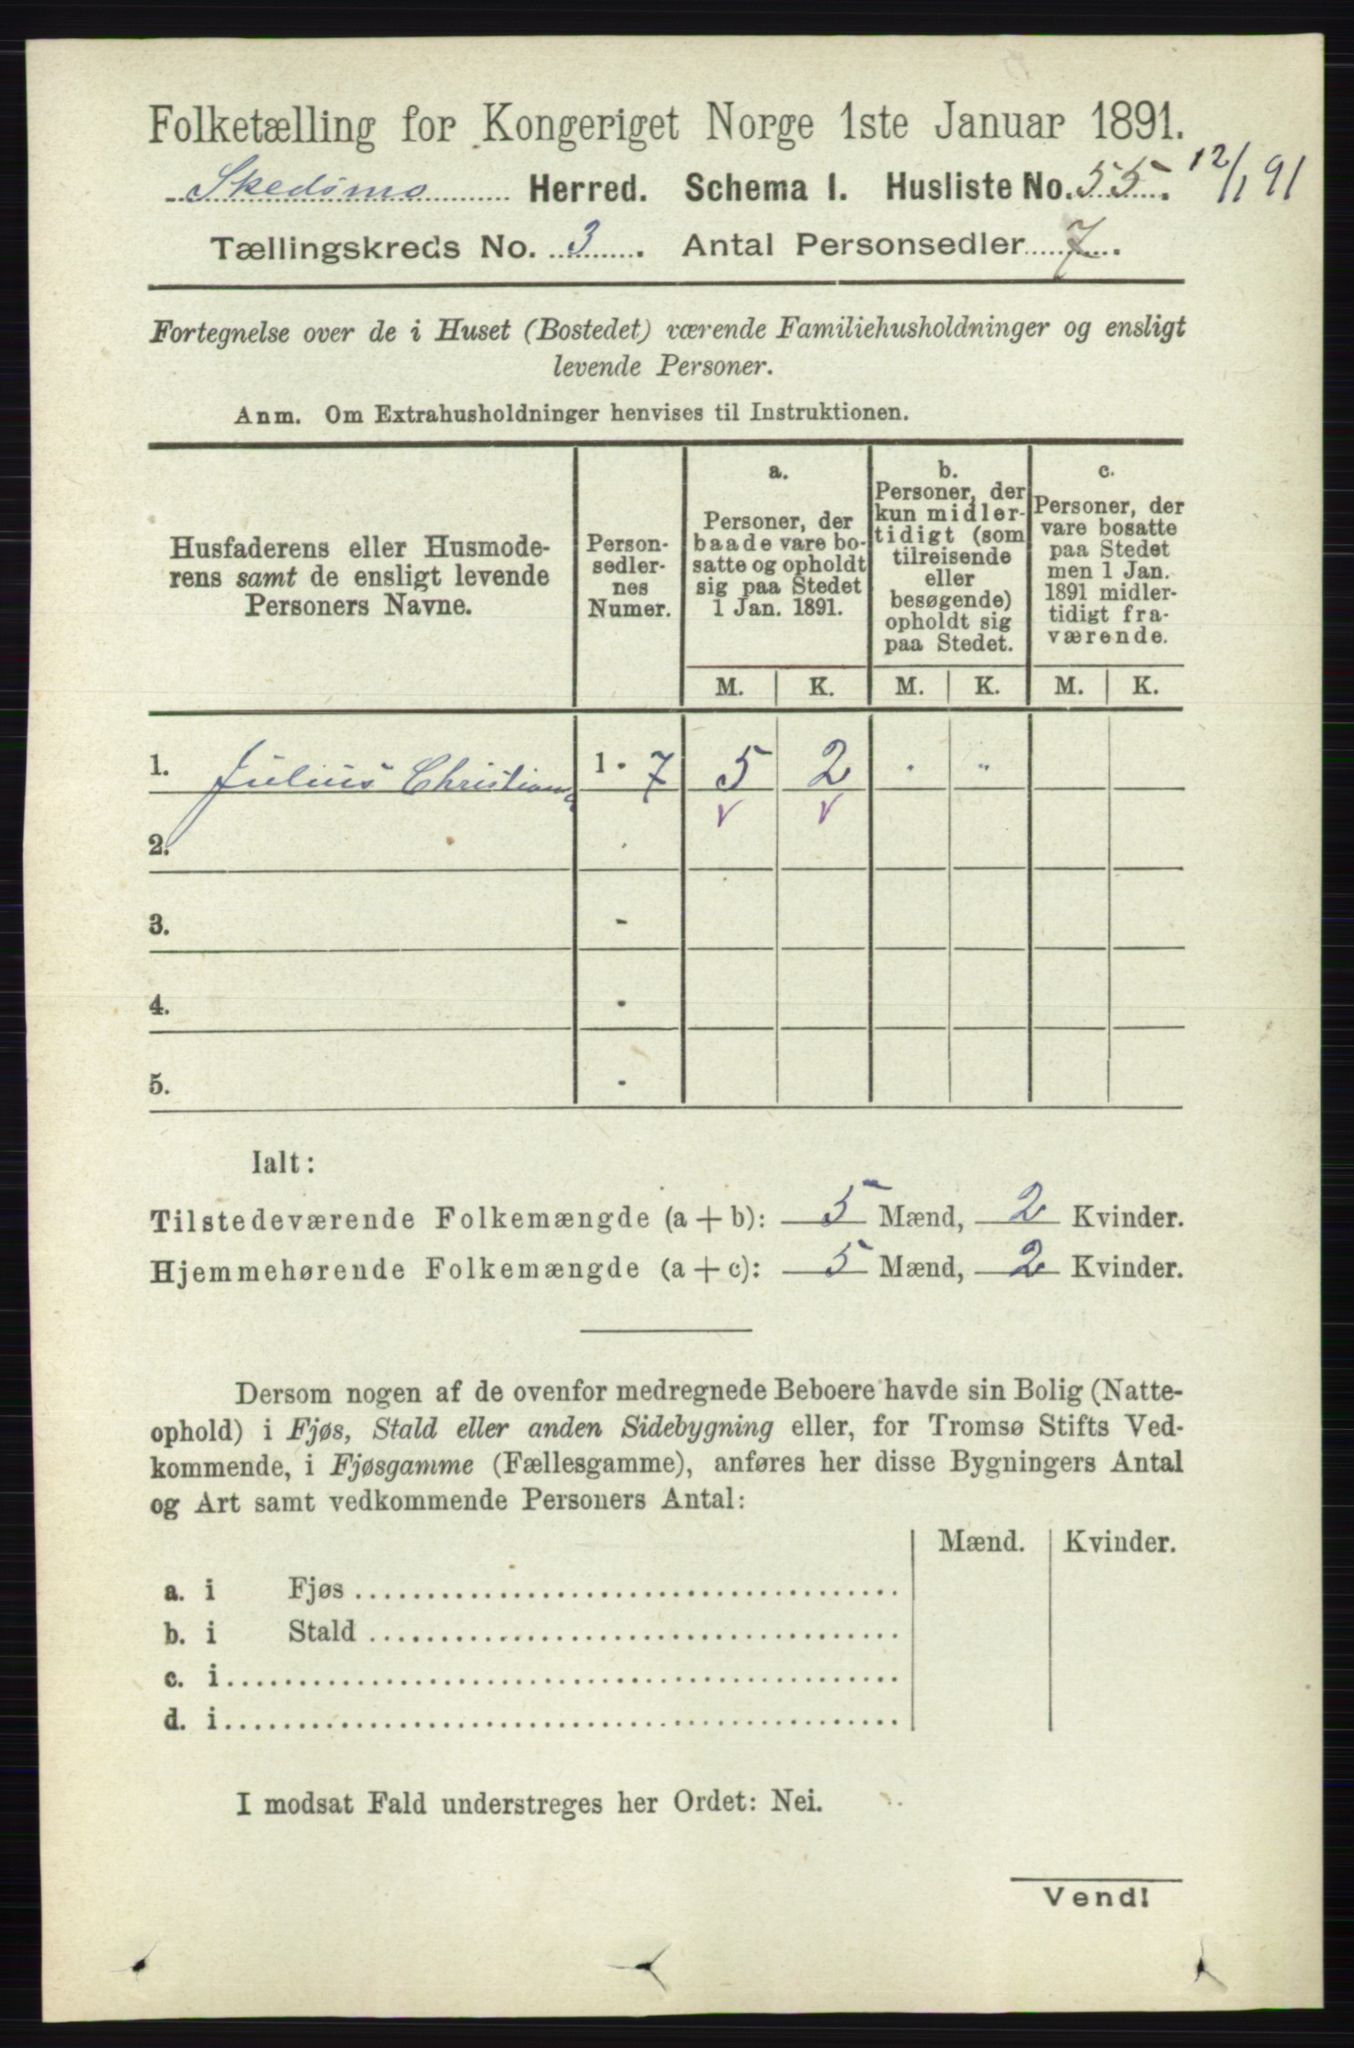 Folketælling for Kongeriget Norge 1ste Januar 1891.
Skedsmo Herred. Schema 1. Husliste No. 55. 12/1 91
Tællingskreds No. 3. Antal Personsedler 7.
Fortegnelse over de i Huset (Bostedet) værende Familiehusholdninger og ensligt
levende Personer.
Anm. Om Extrahusholdninger henvises til Instruktionen.
Husfaderens eller Husmode-
rens samt de ensligt levende
Personers Navne.
Person-
sedler-
nes
Numer.
a.
Personer, der
baade vare bo-
satte og opholdt
sig paa Stedet
1 Jan. 1891.
b.
Personer, der
kun midler-
tidigt (som
tilreisende
eller
besøgende)
opholdt sig
paa Stedet.
c.
Personer, der
vare bosatte
paa Stedet
men 1 Jan.
1891 midler-
tidigt fra-
værende.
M. K. M. K. M. K.
1. Julius Christians 1 - 7 5 2 . "
2. -
3. -
4. -
5. -
Ialt:
Tilstedeværende Folkemængde (a + b): 5 Mænd, 2 Kvinder.
Hjemmehørende Folkemængde (a + c): 5 Mænd, 2 Kvinder.
Dersom nogen af de ovenfor medregnede Beboere havde sin Bolig (Natte-
ophold) i Fjøs, Stald eller anden Sidebygning eller, for Tromsø Stifts Ved-
kommende, i Fjøsgamme (Fællesgamme), anføres her disse Bygningers Antal
og Art samt vedkommende Personers Antal:
Mænd. Kvinder.
a. i Fjøs
b. i Stald
c. i
d. i
I modsat Fald understreges her Ordet: Nei.
Vend!